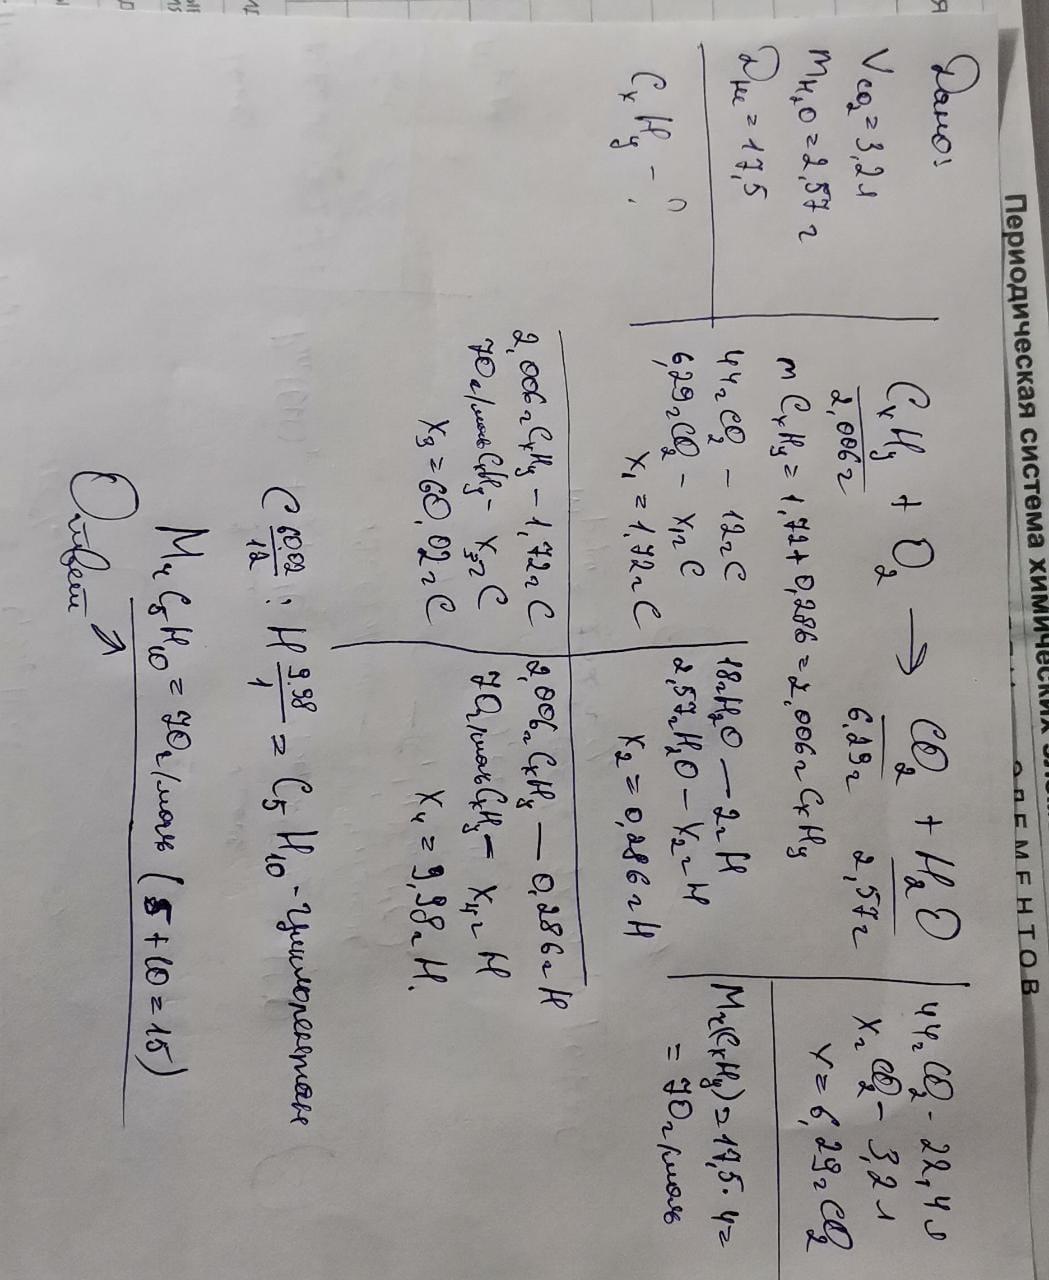 Периодическая система химических
ЭЛЕМЕНТОВ
Дано:
V CO₂ = 3,2 л
m H₂O = 2,57 г
D He = 17,5
CₓHᵧ - ?
CₓHᵧ + O₂ → CO₂ + H₂O
2,006 г 6,29 г 2,57 г
m CₓHᵧ = 1,72 + 0,286 = 2,006 г CₓHᵧ
44 г CO₂ - 22,4 л
x г CO₂ - 3,2 л
x = 6,29 г CO₂
44 г CO₂ - 12 г C
6,29 г CO₂ - x₁ г C
x₁ = 1,72 г C
18 г H₂O — 2 г H
2,57 г H₂O — x₂ г H
x₂ = 0,286 г H
Mr(CₓHᵧ) = 17,5 · 4 =
= 70 г/моль
2,006 г CₓHᵧ - 1,72 г C
70 г/моль CₓHᵧ - x₃ г C
x₃ = 60,02 г C
2,006 г CₓHᵧ — 0,286 г H
70 г/моль CₓHᵧ — x₄ г H
x₄ = 9,98 г H.
C 60,02/12 : H 9,98/1 = C₅ H₁₀ - циклопентан
Mr C₅H₁₀ = 70 г/моль (5+10=15)
Ответ ↗